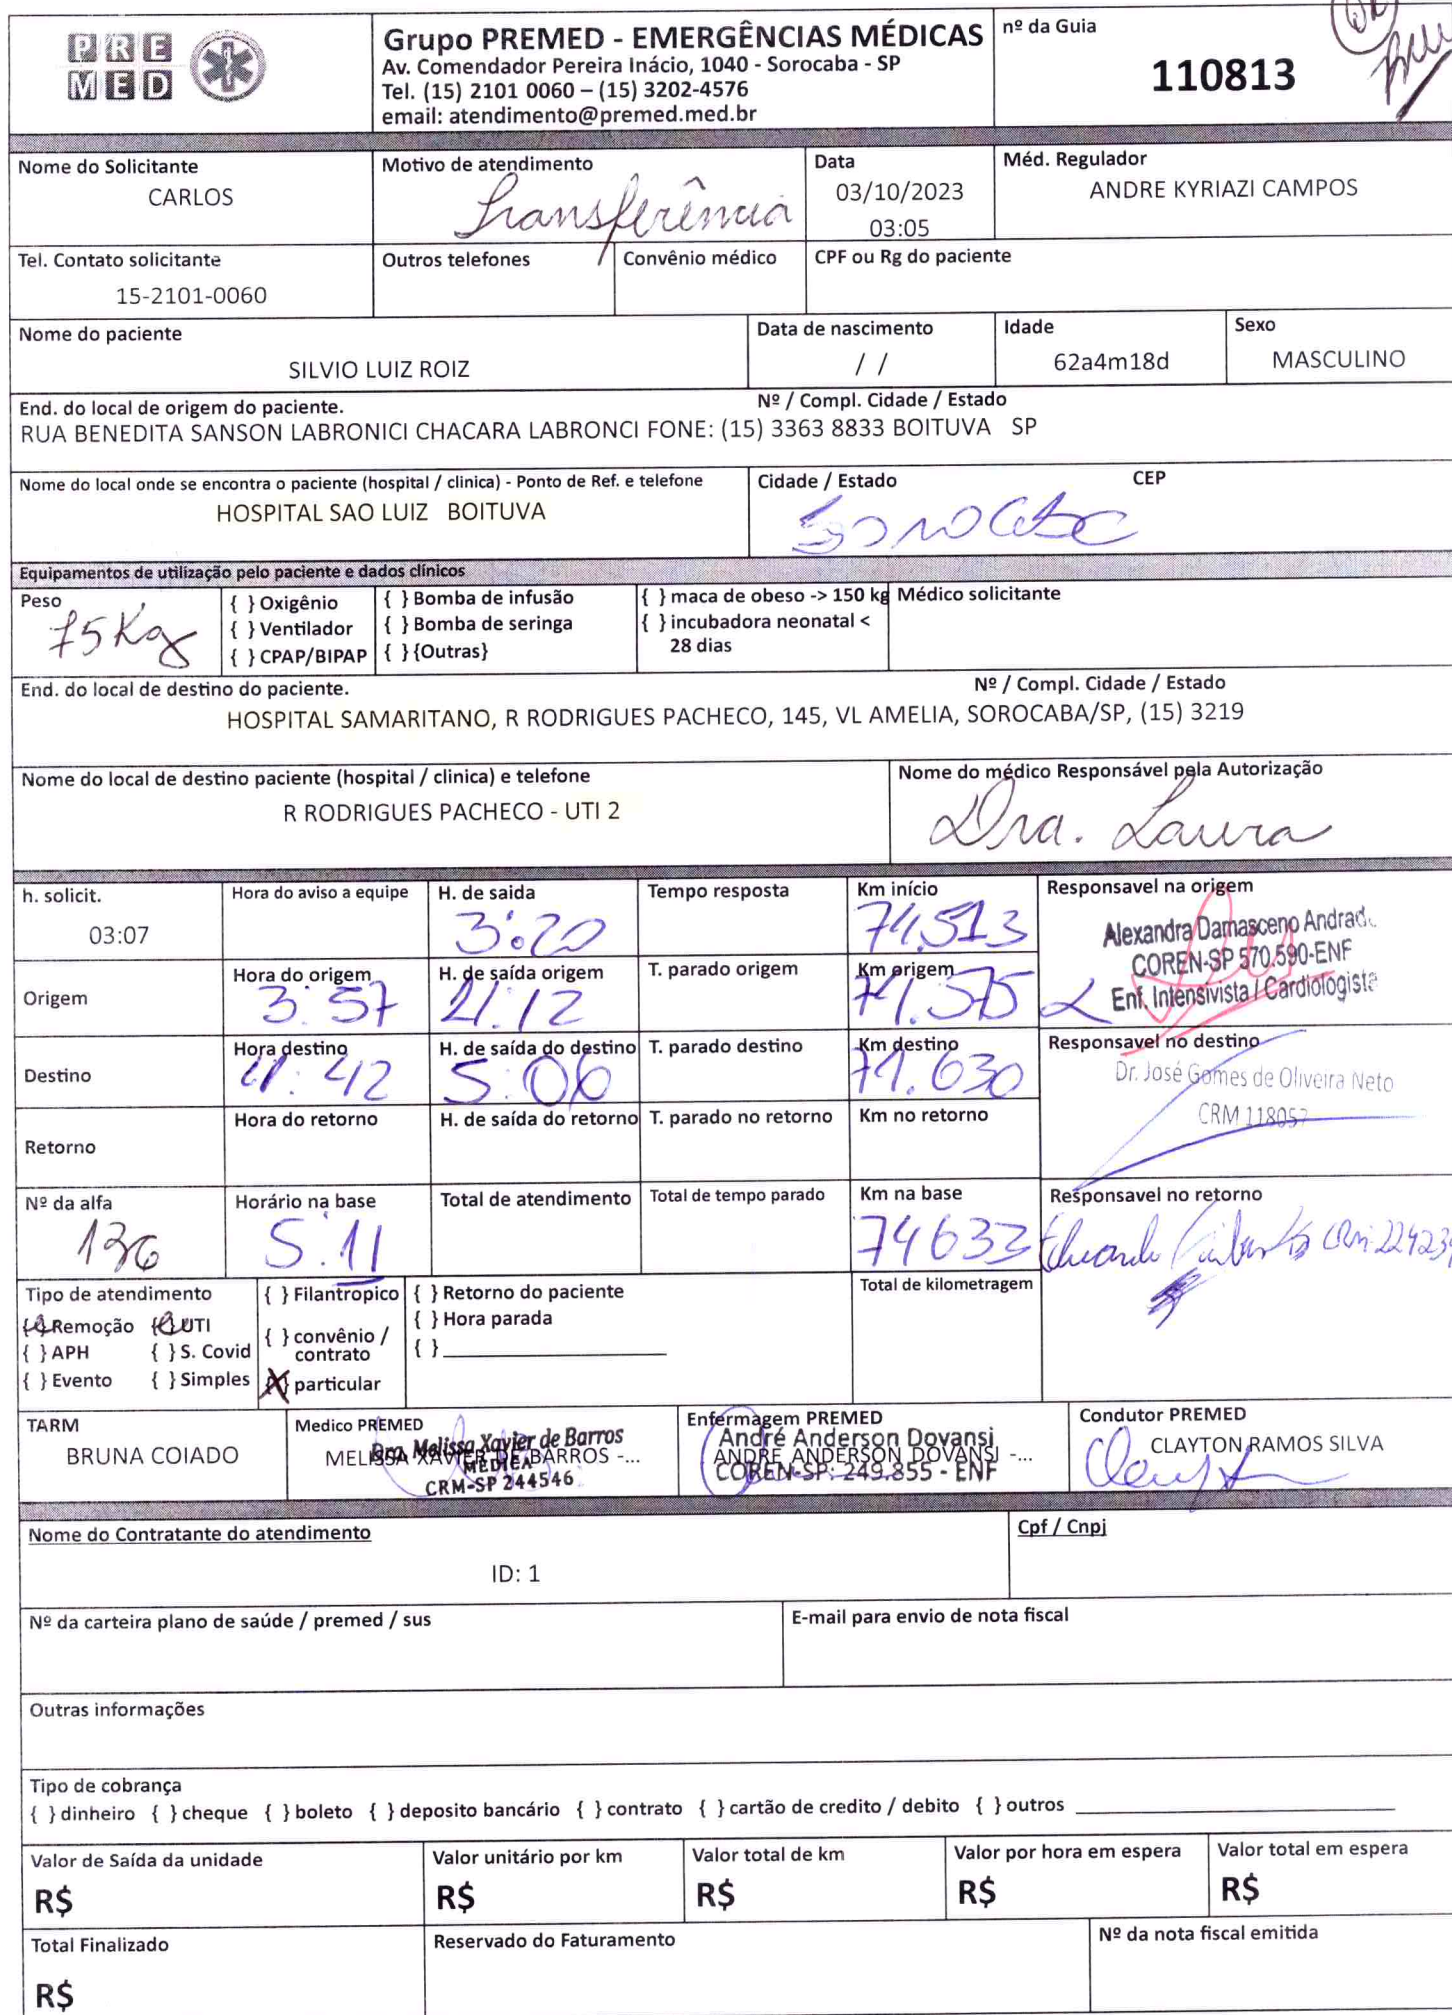 PRE
MED
Grupo PREMED - EMERGÊNCIAS MÉDICAS
Av. Comendador Pereira Inácio, 1040 - Sorocaba - SP
Tel. (15) 2101 0060 – (15) 3202-4576
email: atendimento@premed.med.br
nº da Guia
110813
Nome do Solicitante
CARLOS
Motivo de atendimento
Transferência
Data
03/10/2023
03:05
Méd. Regulador
ANDRE KYRIAZI CAMPOS
Tel. Contato solicitante
15-2101-0060
Outros telefones
Convênio médico
CPF ou Rg do paciente
Nome do paciente
SILVIO LUIZ ROIZ
Data de nascimento
/ /
Idade
62a4m18d
Sexo
MASCULINO
End. do local de origem do paciente.
Nº / Compl. Cidade / Estado
RUA BENEDITA SANSON LABRONICI CHACARA LABRONCI FONE: (15) 3363 8833 BOITUVA SP
Nome do local onde se encontra o paciente (hospital / clinica) - Ponto de Ref. e telefone
HOSPITAL SAO LUIZ BOITUVA
Cidade / Estado
CEP
Sorocaba
Equipamentos de utilização pelo paciente e dados clínicos
Peso
75Kg
{ } Oxigênio
{ } Ventilador
{ } CPAP/BIPAP
{ } Bomba de infusão
{ } Bomba de seringa
{ } {Outras}
{ } maca de obeso -> 150 kg
{ } incubadora neonatal <
28 dias
Médico solicitante
End. do local de destino do paciente.
Nº / Compl. Cidade / Estado
HOSPITAL SAMARITANO, R RODRIGUES PACHECO, 145, VL AMELIA, SOROCABA/SP, (15) 3219
Nome do local de destino paciente (hospital / clinica) e telefone
R RODRIGUES PACHECO - UTI 2
Nome do médico Responsável pela Autorização
Dra. Laura
h. solicit.
03:07
Hora do aviso a equipe
H. de saida
3:20
Tempo resposta
Km início
74.513
Responsavel na origem
Alexandra Damasceno Andrad
COREN-SP 570.590-ENF
Enf. Intensivista / Cardiologista
Origem
Hora do origem
3:57
H. de saída origem
4:12
T. parado origem
Km origem
74.575
Destino
Hora destino
4:42
H. de saída do destino
5:06
T. parado destino
Km destino
74.630
Responsavel no destino
Dr. José Gomes de Oliveira Neto
CRM 118057
Retorno
Hora do retorno
H. de saída do retorno
T. parado no retorno
Km no retorno
Nº da alfa
136
Horário na base
5:11
Total de atendimento
Total de tempo parado
Km na base
74633
Responsavel no retorno
Eduardo
Tipo de atendimento
{ } Remoção { } UTI
{ } APH { } S. Covid
{ } Evento { } Simples
{ } Filantropico
{ } convênio /
contrato
{X} particular
{ } Retorno do paciente
{ } Hora parada
{ }
Total de kilometragem
TARM
BRUNA COIADO
Medico PREMED
MELISSA XAVIER DE BARROS -...
Dra. Melissa Xavier de Barros
MÉDICA
CRM-SP 244546
Enfermagem PREMED
ANDRE ANDERSON DOVANSI -...
André Anderson Dovansi
COREN-SP: 249.855 - ENF
Condutor PREMED
CLAYTON RAMOS SILVA
Nome do Contratante do atendimento
ID: 1
Cpf / Cnpj
Nº da carteira plano de saúde / premed / sus
E-mail para envio de nota fiscal
Outras informações
Tipo de cobrança
{ } dinheiro { } cheque { } boleto { } deposito bancário { } contrato { } cartão de credito / debito { } outros
Valor de Saída da unidade
R$
Valor unitário por km
R$
Valor total de km
R$
Valor por hora em espera
R$
Valor total em espera
R$
Total Finalizado
R$
Reservado do Faturamento
Nº da nota fiscal emitida